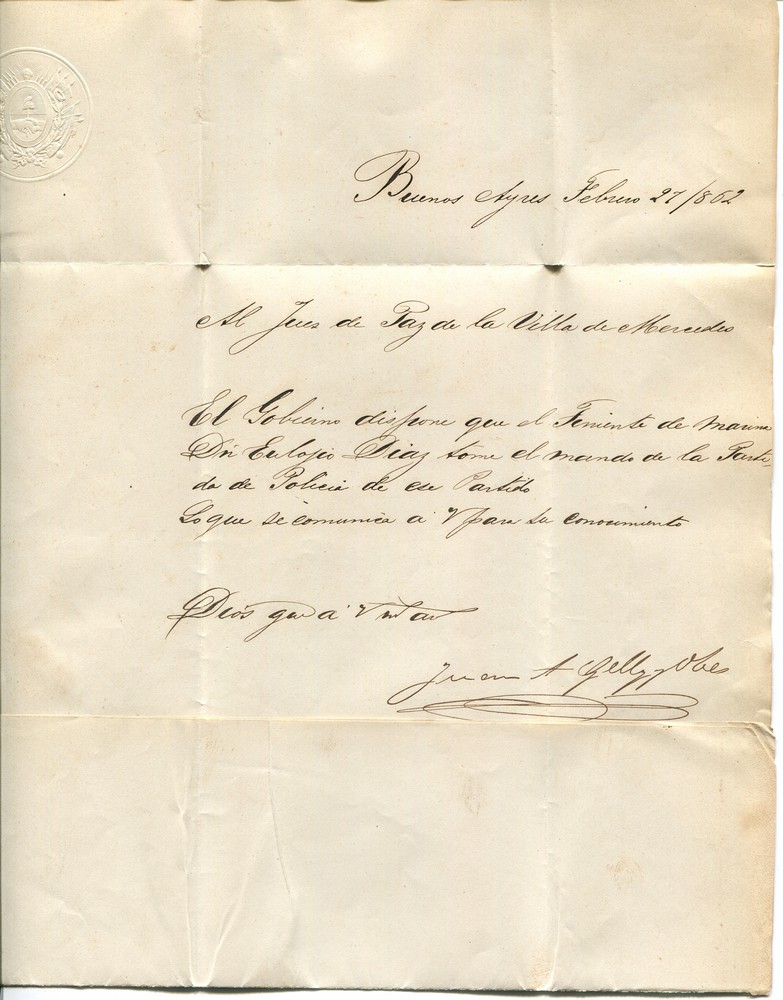 Buenos Ayres Febrero 27/862
Al Juez de Paz de la Villa de Mercedes
El Gobierno dispone que el Teniente de Marina
Dn Eulojio Diaz tome el mando de la Parti-
da de Policia de ese Partido
Lo que se comunica a V para su conocimiento
Dios gue a V ms as
Juan A Gelly y Obes